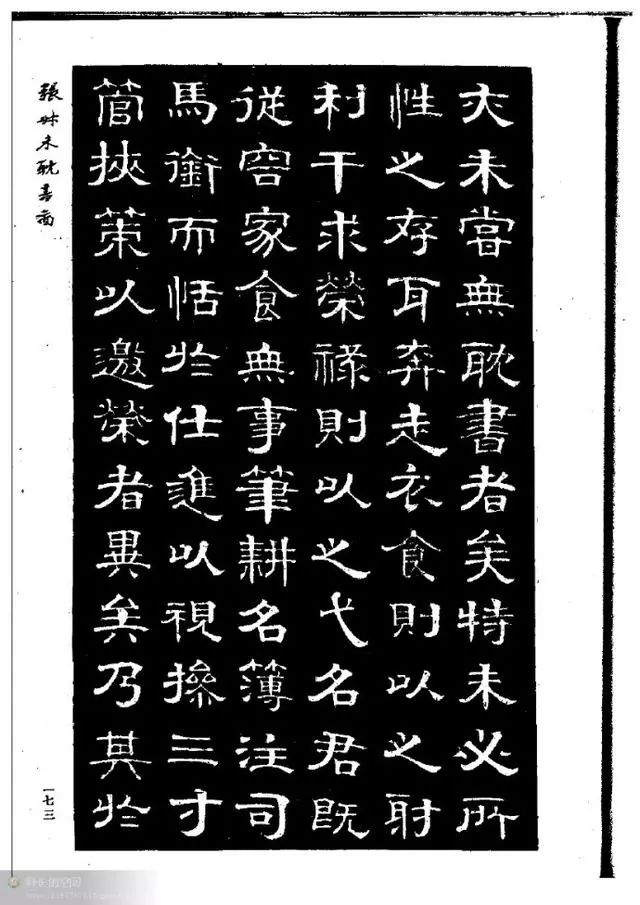 夫未嘗無耽書者矣特未必所
性之存耳奔走衣食則以之射
利干求榮祿則以之弋名君既
從宦家食無事筆耕名簿注司
馬銜而恬於仕進以視操三寸
管挾策以邀榮者異矣乃其於
張叔未耽書圖
一七三